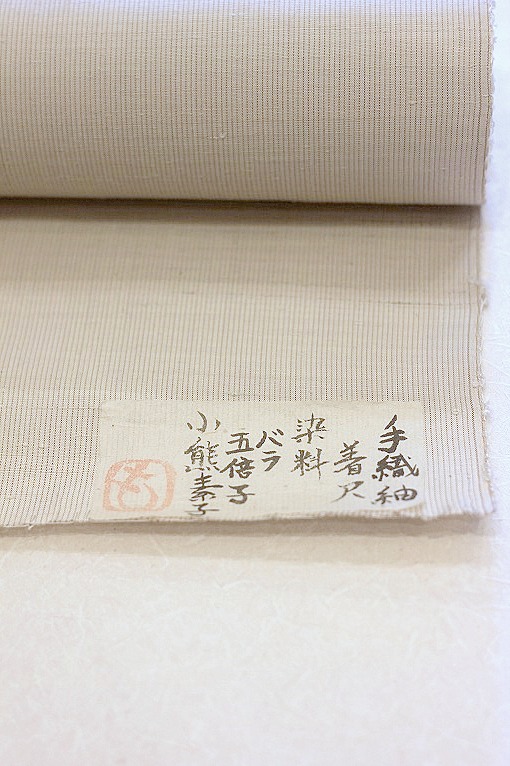 手織紬
着尺
染料
バラ
五倍子
小熊素子